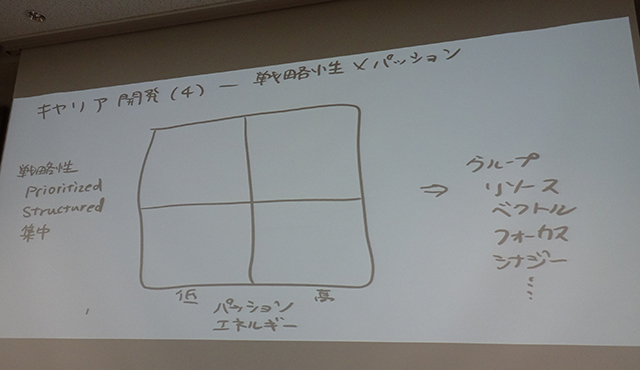 キャリア開発(4) ー 戦略性×パッション
戦略性
Prioritized
Structured
集中
低
高
パッション
エネルギー
⇒
グループ
リソース
ベクトル
フォーカス
シナジー
⋮